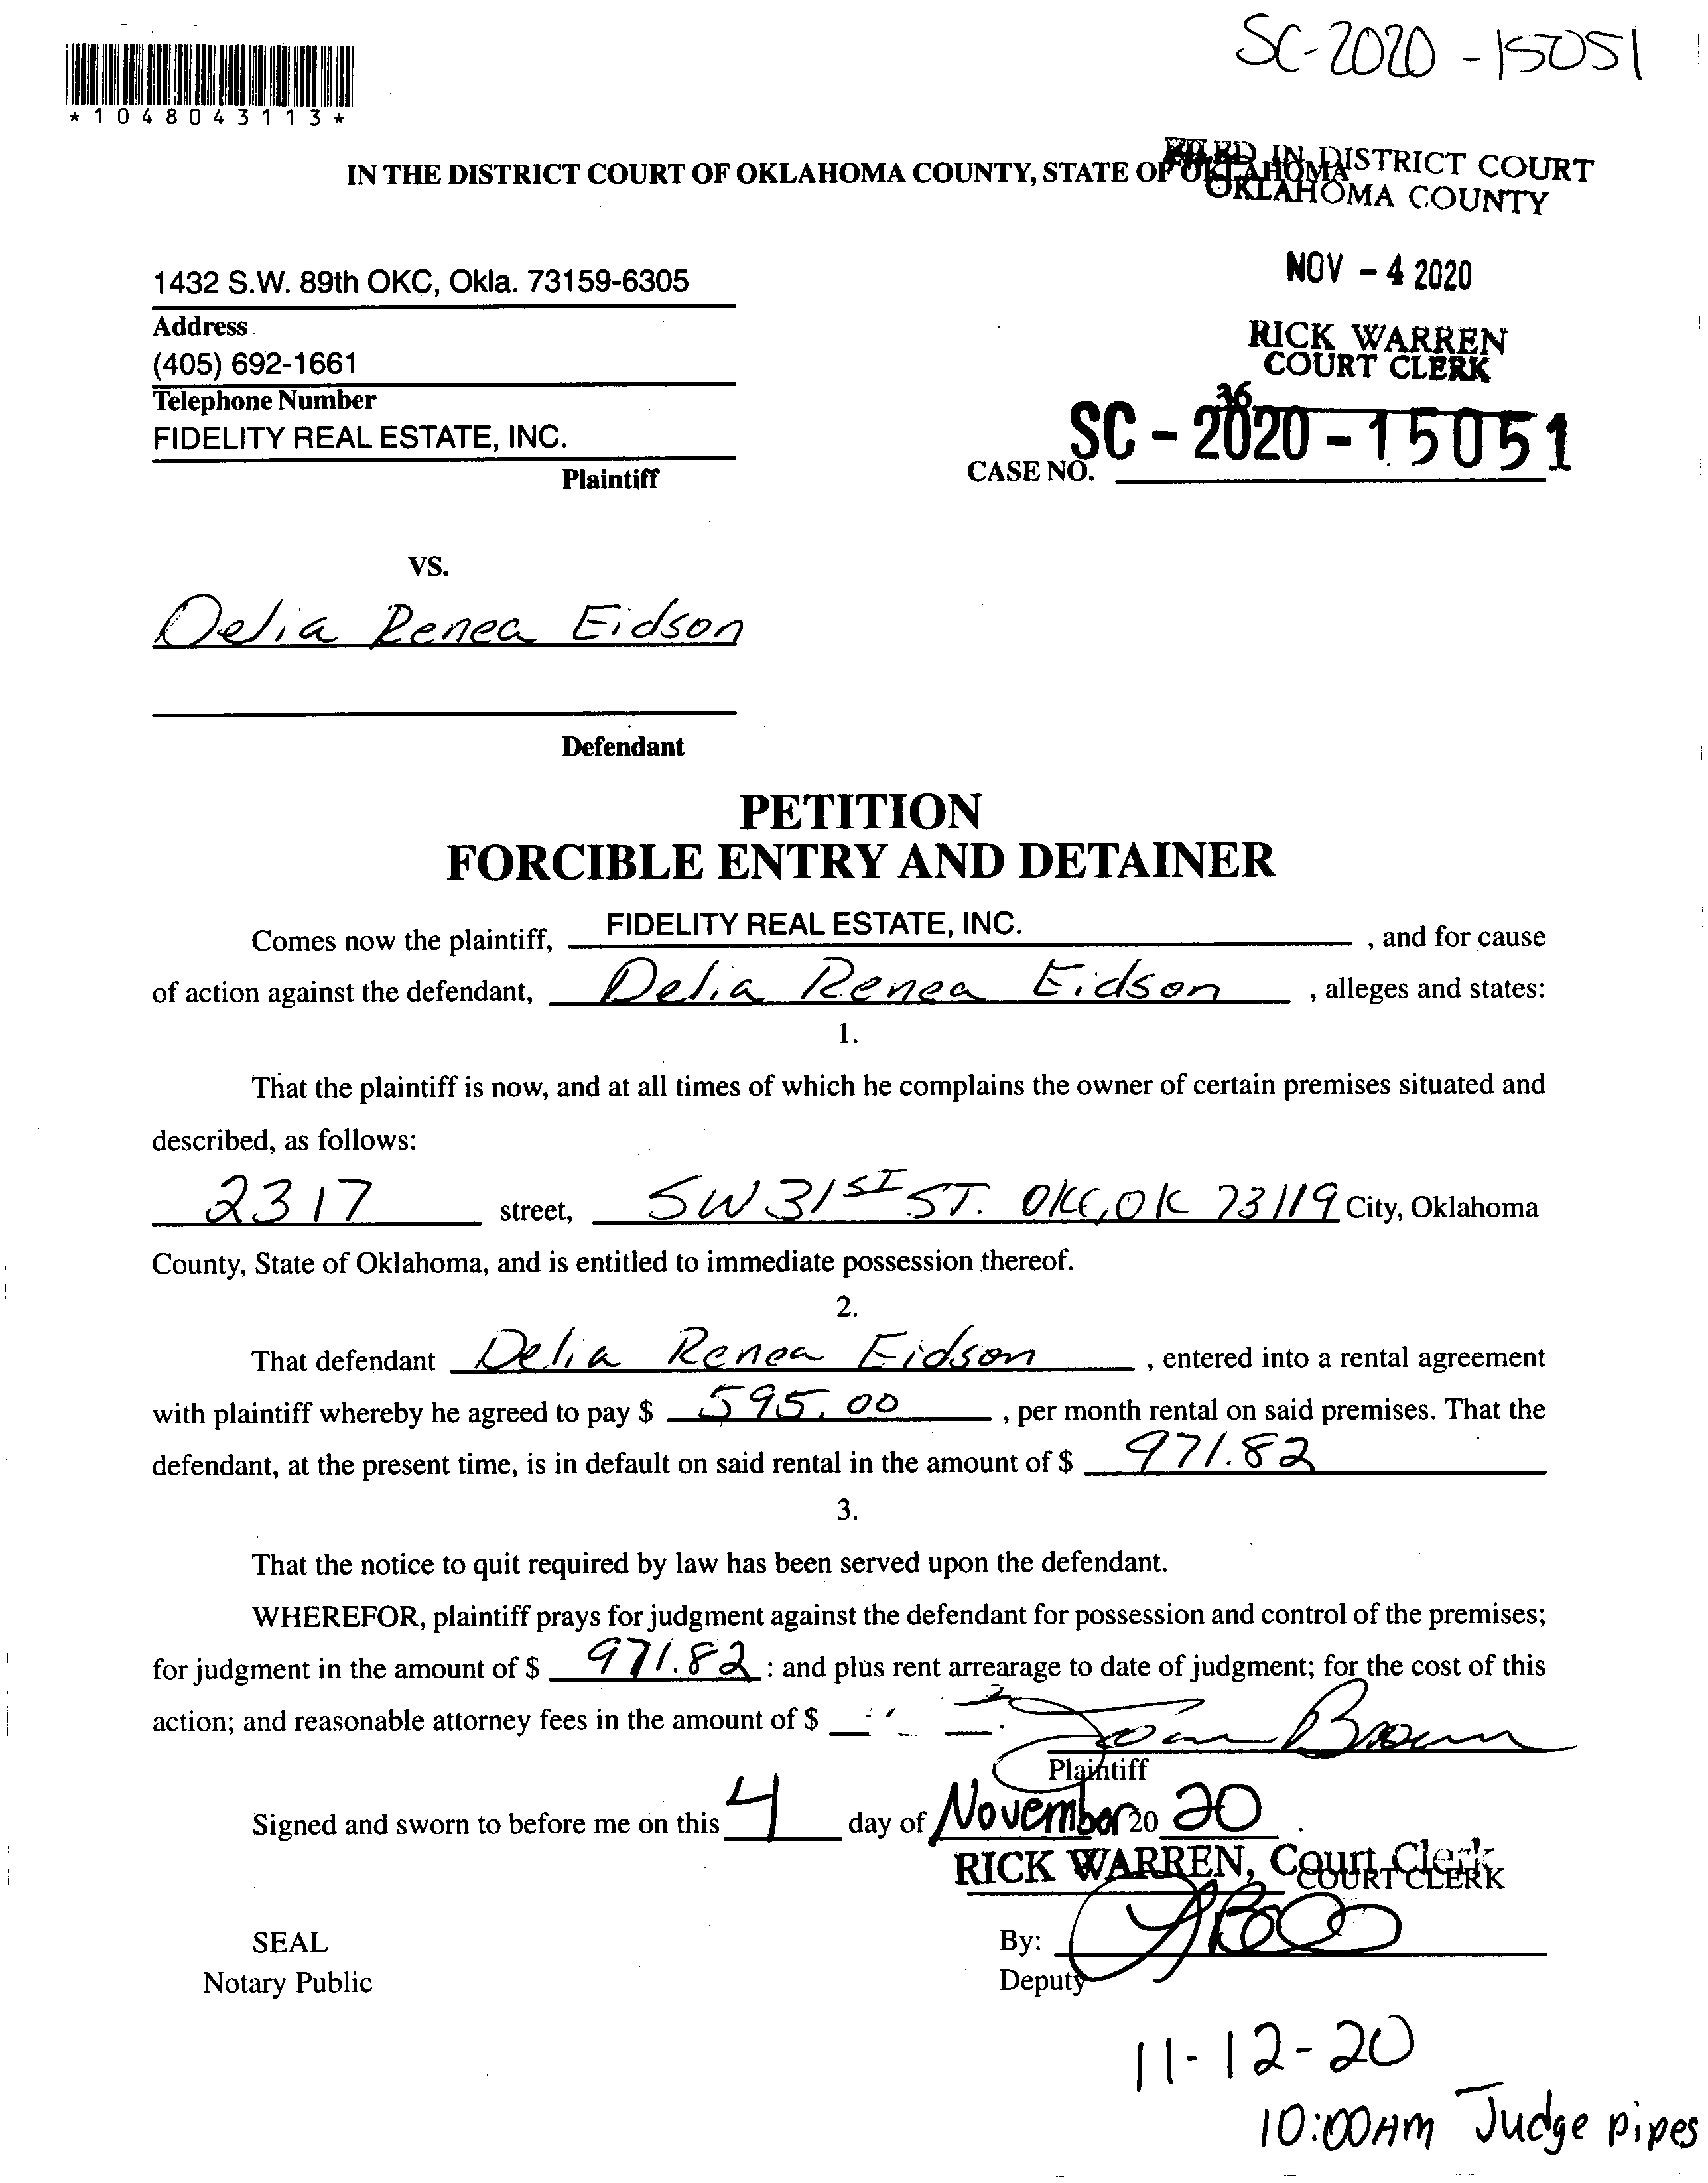 SC-2020-15051
*1048043113*
IN THE DISTRICT COURT OF OKLAHOMA COUNTY, STATE OF OKLAHOMA
FILED IN DISTRICT COURT
OKLAHOMA COUNTY
1432 S.W. 89th OKC, Okla. 73159-6305
NOV - 4 2020
Address
RICK WARREN
(405) 692-1661
COURT CLERK
Telephone Number
36
FIDELITY REAL ESTATE, INC.
CASE NO. SC-2020-15051
Plaintiff
VS.
Delia Renea Eidson
Defendant
PETITION
FORCIBLE ENTRY AND DETAINER
Comes now the plaintiff, FIDELITY REAL ESTATE, INC. , and for cause
of action against the defendant, Delia Renea Eidson , alleges and states:
1.
That the plaintiff is now, and at all times of which he complains the owner of certain premises situated and
described, as follows:
2317 street, SW 31ST ST. OKC, OK 73119 City, Oklahoma
County, State of Oklahoma, and is entitled to immediate possession thereof.
2.
That defendant Delia Renea Eidson , entered into a rental agreement
with plaintiff whereby he agreed to pay $ 595.00 , per month rental on said premises. That the
defendant, at the present time, is in default on said rental in the amount of $ 971.82
3.
That the notice to quit required by law has been served upon the defendant.
WHEREFOR, plaintiff prays for judgment against the defendant for possession and control of the premises;
for judgment in the amount of $ 971.82 : and plus rent arrearage to date of judgment; for the cost of this
action; and reasonable attorney fees in the amount of $
Joan Brown
Plaintiff
Signed and sworn to before me on this 4 day of November 20 20 .
RICK WARREN, Court Clerk
COURT CLERK
SEAL
By:
Notary Public
Deputy
11-12-20
10:00AM Judge pipes